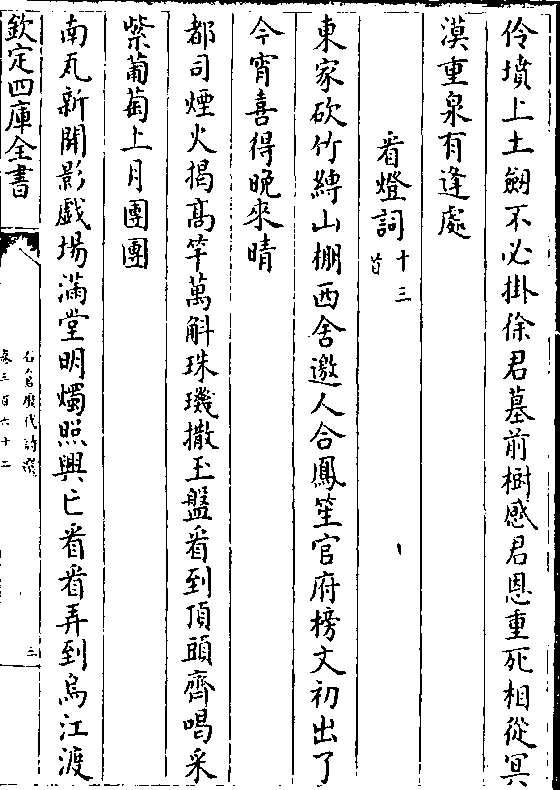 伶墳上土劒不必掛徐君墓前樹感君恩重死相從冥
漠重泉有逢處
看燈詞十三首
東家砍竹縛山棚西舍邀人合鳳笙官府榜文初出了
今宵喜得晚來晴
都司煙火揭髙竿萬斛珠璣撒玉盤看到頂頭齊喝采
紫葡萄上月團團
南瓦新開影戲場滿堂明燭照興亡看看弄到烏江渡
欽定四庫全書
石倉歷代詩選
卷三百六十二
三